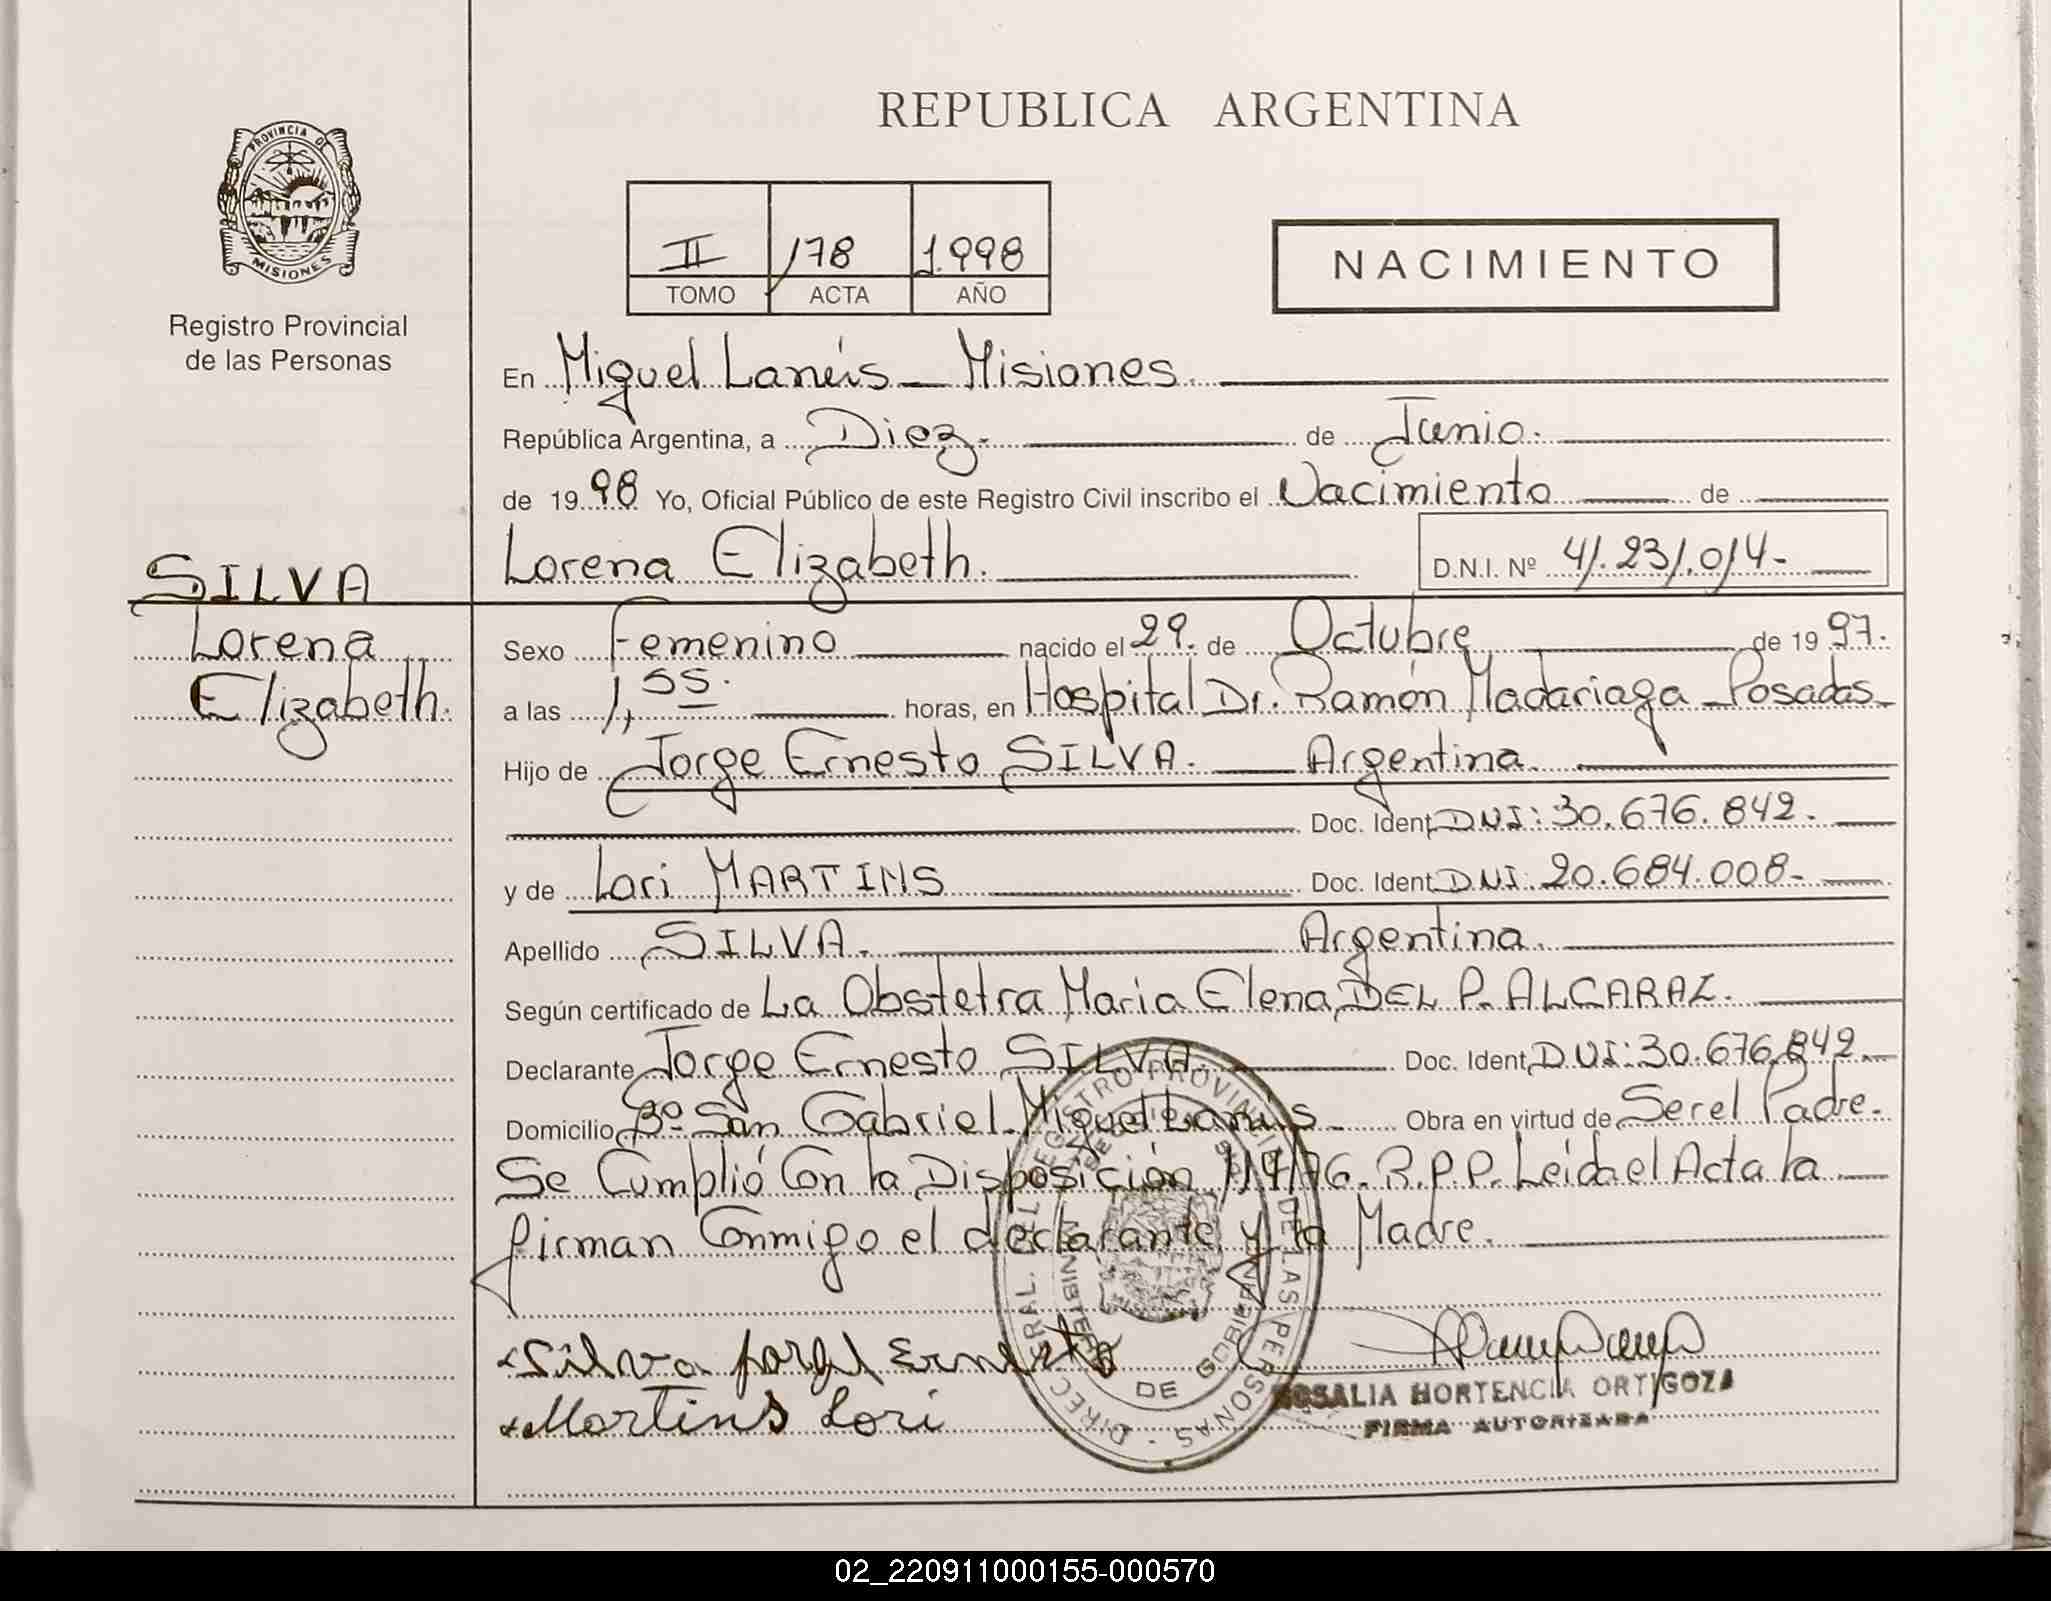 REPUBLICA ARGENTINA
PROVINCIA DE
MISIONES
Registro Provincial
de las Personas
II 178 1.998
TOMO ACTA AÑO
NACIMIENTO
En Miguel Lanús - Misiones
República Argentina, a Diez. de Junio.
de 19 98 Yo, Oficial Público de este Registro Civil inscribo el Nacimiento de
Lorena Elizabeth. D.N.I. Nº 41.231.014-
SILVA
Lorena
Elizabeth.
Sexo Femenino nacido el 29. de Octubre de 19 97.
a las 1,55. horas, en Hospital Dr. Ramón Madariaga - Posadas-
Hijo de Jorge Ernesto SILVA. Argentina.
Doc. Ident. DNI: 30.676.842.
y de Lori MARTINS Doc. Ident. DNI: 20.684.008-
Apellido SILVA. Argentina.
Según certificado de La Obstetra Maria Elena DEL P. ALCARAZ.
Declarante Jorge Ernesto SILVA. Doc. Ident. DNI: 30.676.842.
Domicilio Bº San Gabriel. Miguel Lanús- Obra en virtud de Ser el Padre.
Se Cumplió Con la Disposición 119/76. R.P.P. Leida el Acta la
firman Conmigo el declarante y la Madre.
DIREC. GRAL. DEL REGISTRO PROVINCIAL DE LAS PERSONAS -
MINISTERIO DE GOBIERNO
Silva Jorge Ernesto
Martins Lori
ROSALIA HORTENCIA ORTIGOZA
FIRMA AUTORIZADA
02_220911000155-000570